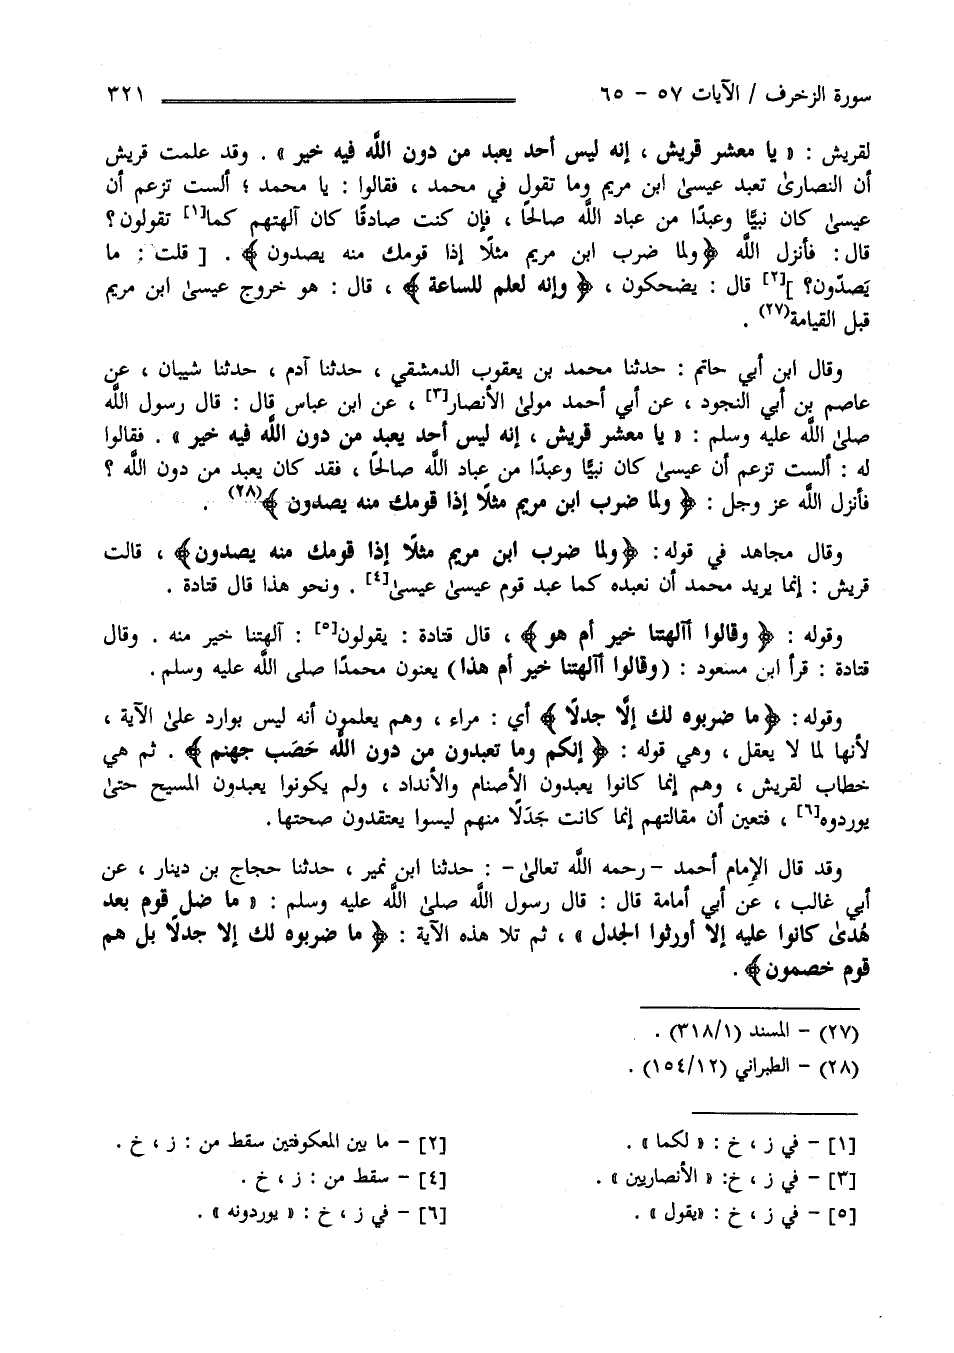 سورة الزخرف / الآيات ٥٧ - ٦٥ ٣٢١
لقريش : « يا معشر قريش ، إنه ليس أحد يعبد من دون اللَّه فيه خير » . وقد علمت قريش
أن النصارىٰ تعبد عيسىٰ ابن مريم وما تقول في محمد ، فقالوا : يا محمد ؛ ألست تزعم أن
عيسىٰ كان نبيًّا وعبدًا من عباد اللَّه صالحًا ، فإن كنت صادقًا كان آلهتهم كما[١] تقولون؟
قال: فأنزل اللَّه ﴿ولما ضرب ابن مريم مثلًا إذا قومك منه يصدون﴾ . [ قلت : ما
يَصدّون؟ ][٢] قال : يضحكون ، ﴿ وإنه لعلم للساعة ﴾ ، قال : هو خروج عيسىٰ ابن مريم
قبل القيامة(٢٧) .
وقال ابن أبي حاتم : حدثنا محمد بن يعقوب الدمشقي ، حدثنا آدم ، حدثنا شيبان ، عن
عاصم بن أبي النجود ، عن أبي أحمد مولىٰ الأنصار[٣] ، عن ابن عباس قال : قال رسول اللَّه
صلىٰ اللَّه عليه وسلم : « يا معشر قريش ، إنه ليس أحد يعبد من دون اللَّه فيه خير » . فقالوا
له : ألست تزعم أن عيسىٰ كان نبيًّا وعبدًا من عباد اللَّه صالحًا ، فقد كان يعبد من دون اللَّه ؟
فأنزل اللَّه عز وجل : ﴿ ولما ضرب ابن مريم مثلًا إذا قومك منه يصدون ﴾(٢٨) .
وقال مجاهد في قوله: ﴿ولما ضرب ابن مريم مثلًا إذا قومك منه يصدون﴾ ، قالت
قريش : إنما يريد محمد أن نعبده كما عبد قوم عيسىٰ عيسىٰ[٤] . ونحو هذا قال قتادة .
وقوله : ﴿ وقالوا أآلهتنا خير أم هو ﴾ ، قال قتادة : يقولون[٥] : آلهتنا خير منه . وقال
قتادة : قرأ ابن مسعود : (وقالوا أآلهتنا خير أم هذا) يعنون محمدًا صلى اللَّه عليه وسلم.
وقوله: ﴿ما ضربوه لك إلَّا جدلًا﴾ أي : مراء ، وهم يعلمون أنه ليس بوارد علىٰ الآية ،
لأنها لما لا يعقل ، وهي قوله : ﴿ إنكم وما تعبدون من دون اللَّه حَصَب جهنم ﴾ . ثم هي
خطاب لقريش ، وهم إنما كانوا يعبدون الأصنام والأنداد ، ولم يكونوا يعبدون المسيح حتىٰ
يوردوه[٦] ، فتعين أن مقالتهم إنما كانت جَدَلًا منهم ليسوا يعتقدون صحتها.
وقد قال الإمام أحمد - رحمه اللَّه تعالىٰ - : حدثنا ابن نمير ، حدثنا حجاج بن دينار ، عن
أبي غالب ، عن أبي أمامة قال : قال رسول اللَّه صلىٰ اللَّه عليه وسلم : « ما ضل قوم بعد
هُدىٰ كانوا عليه إلا أورثوا الجدل » ، ثم تلا هذه الآية : ﴿ ما ضربوه لك إلا جدلًا بل هم
قوم خصمون﴾ .
(٢٧) - المسند (٣١٨/١) .
(٢٨) - الطبراني (١٥٤/١٢) .
[١] - في ز ، خ : « لكما » . [٢] - ما بين المعكوفتين سقط من : ز ، خ .
[٣] - في ز ، خ: « الأنصاريين » . [٤] - سقط من : ز ، خ .
[٥] - في ز ، خ : «يقول» . [٦] - في ز ، خ : « يوردونه » .